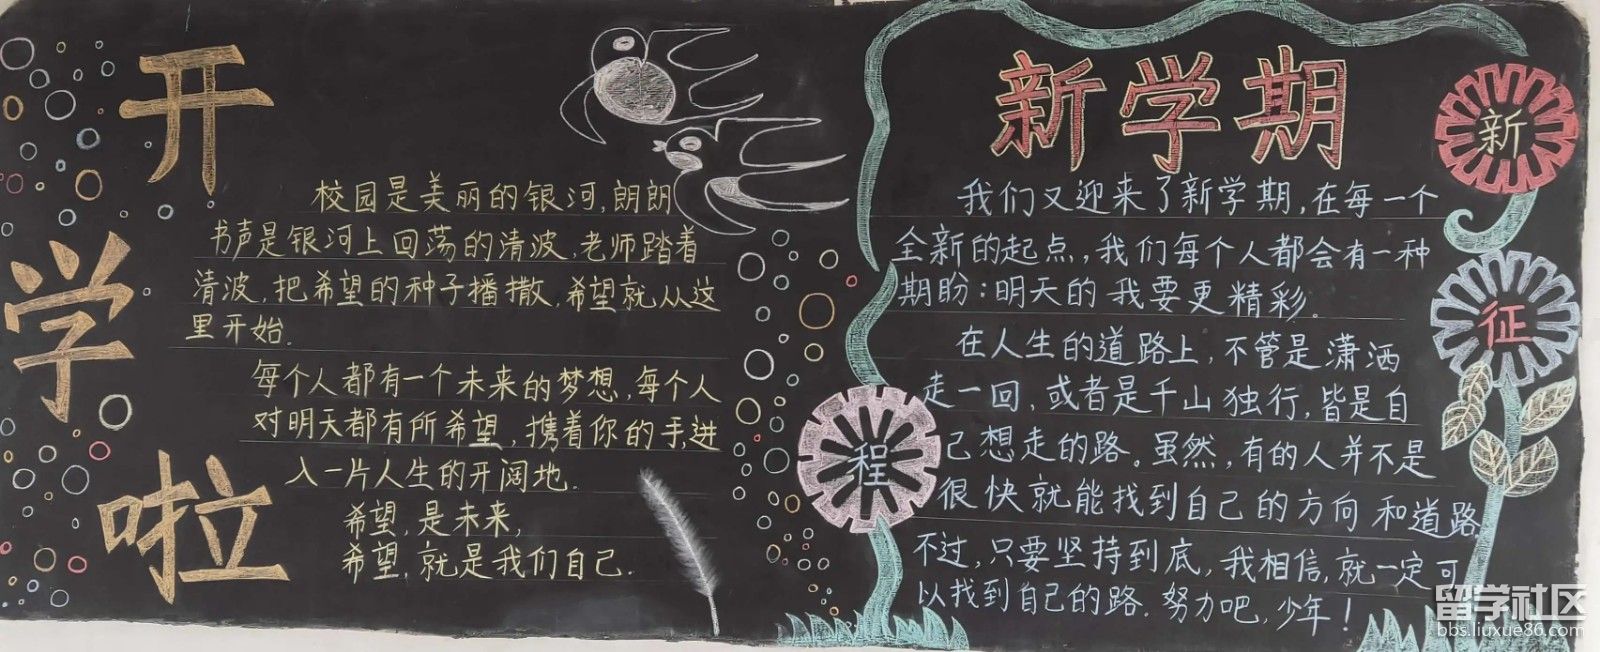 开学啦
校园是美丽的银河,朗朗
书声是银河上回荡的清波,老师踏着
清波,把希望的种子播撒,希望就从这
里开始.
每个人都有一个未来的梦想,每个人
对明天都有所希望,携着你的手,进
入一片人生的开阔地.
希望,是未来,
希望,就是我们自己.
新学期
我们又迎来了新学期,在每一个
全新的起点,我们每个人都会有一种
期盼:明天的我要更精彩.
在人生的道路上,不管是潇洒
走一回,或者是千山独行,皆是自
己想走的路。虽然,有的人并不是
很快就能找到自己的方向和道路
不过,只要坚持到底,我相信,就一定可
以找到自己的路.努力吧,少年!
新
征
程
留学社区
bbs.liuxue86.com